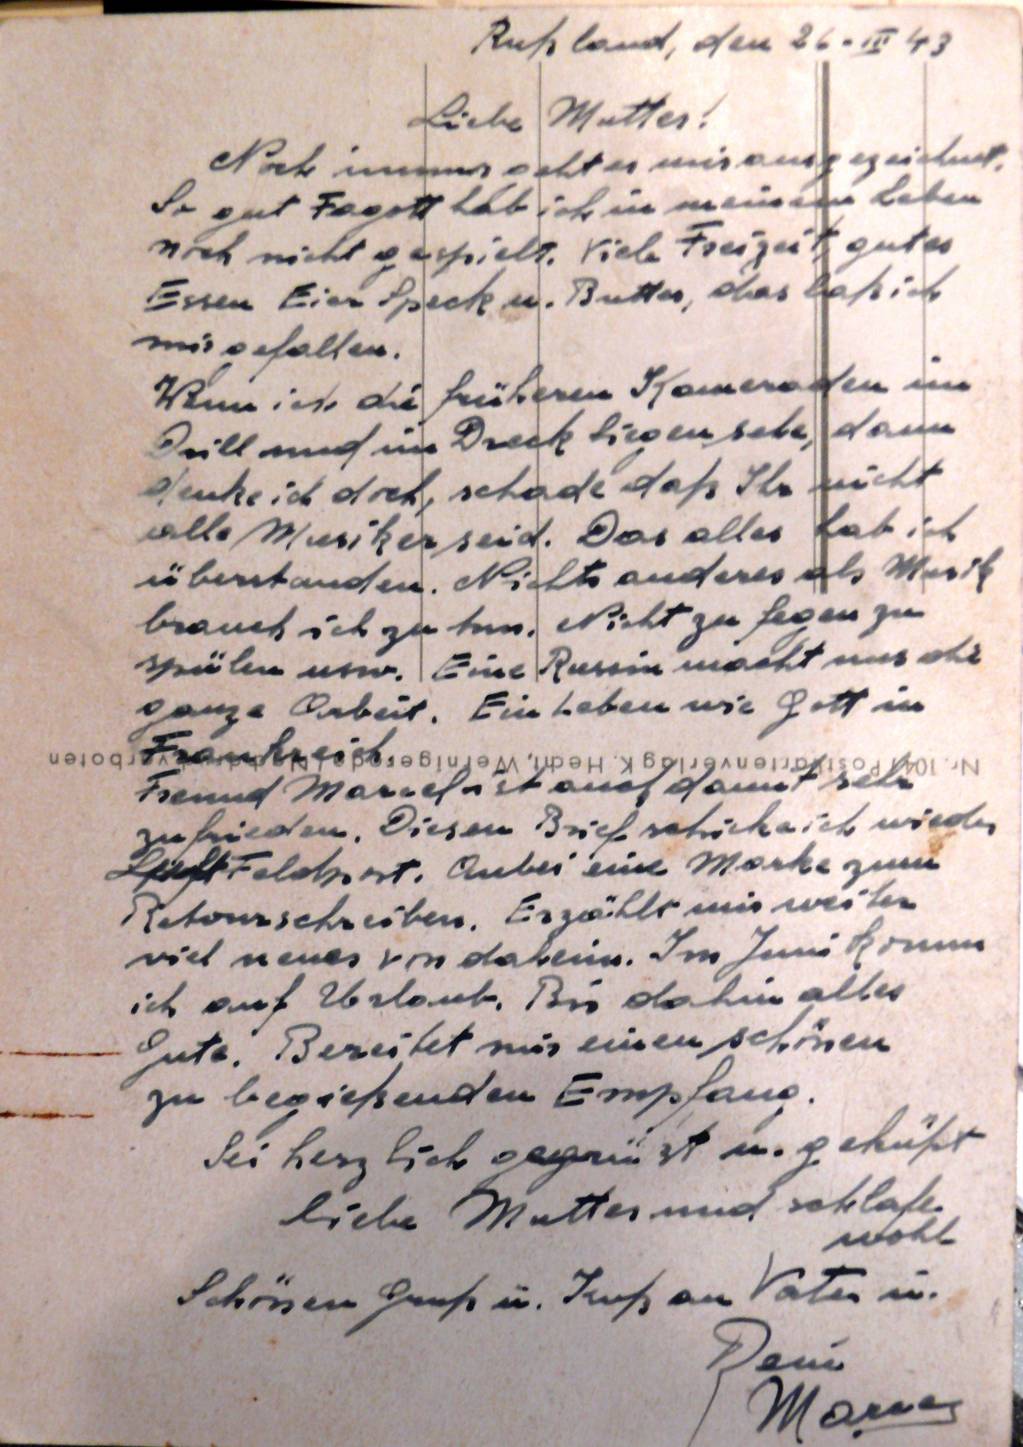 Rußland, den 26. III 43
Liebe Mutter!
Noch immer geht es mir ausgezeichnet.
So gut Fagott hab ich in meinem Leben
noch nicht gespielt. Viele Freizeit, gutes
Essen Eier Speck u. Butter, das laß ich
mir gefallen.
Wenn ich die früheren Kameraden im
Drill und im Dreck liegen sehe, dann
denke ich doch, schade daß Ihr nicht
alle Musiker seid. Das alles hab ich
überstanden. Nichts anderes als Musik
brauch ich zu tun. Nicht zu fegen zu
spülen usw. Eine Russin macht uns die
ganze Arbeit. Ein Leben wie Gott in
Frankreich.
Nr. 1041 Postkartenverlag K. Hecht, Wernigerode | Nachdruck verboten
Freund Marcel ist auch damit sehr
zufrieden. Diesen Brief schicke ich wieder
Luft Feldpost. Anbei eine Marke zum
Retourschreiben. Erzählt mir weiter
viel neues von daheim. Im Juni komm
ich auf Urlaub. Bis dahin alles
Gute. Bereitet mir einen schönen
zu begießenden Empfang.
Sei herzlich gegrüßt u. geküßt
liebe Mutter und schlafe
wohl
Schönen Gruß u. Kuß an Vater u.
Dein